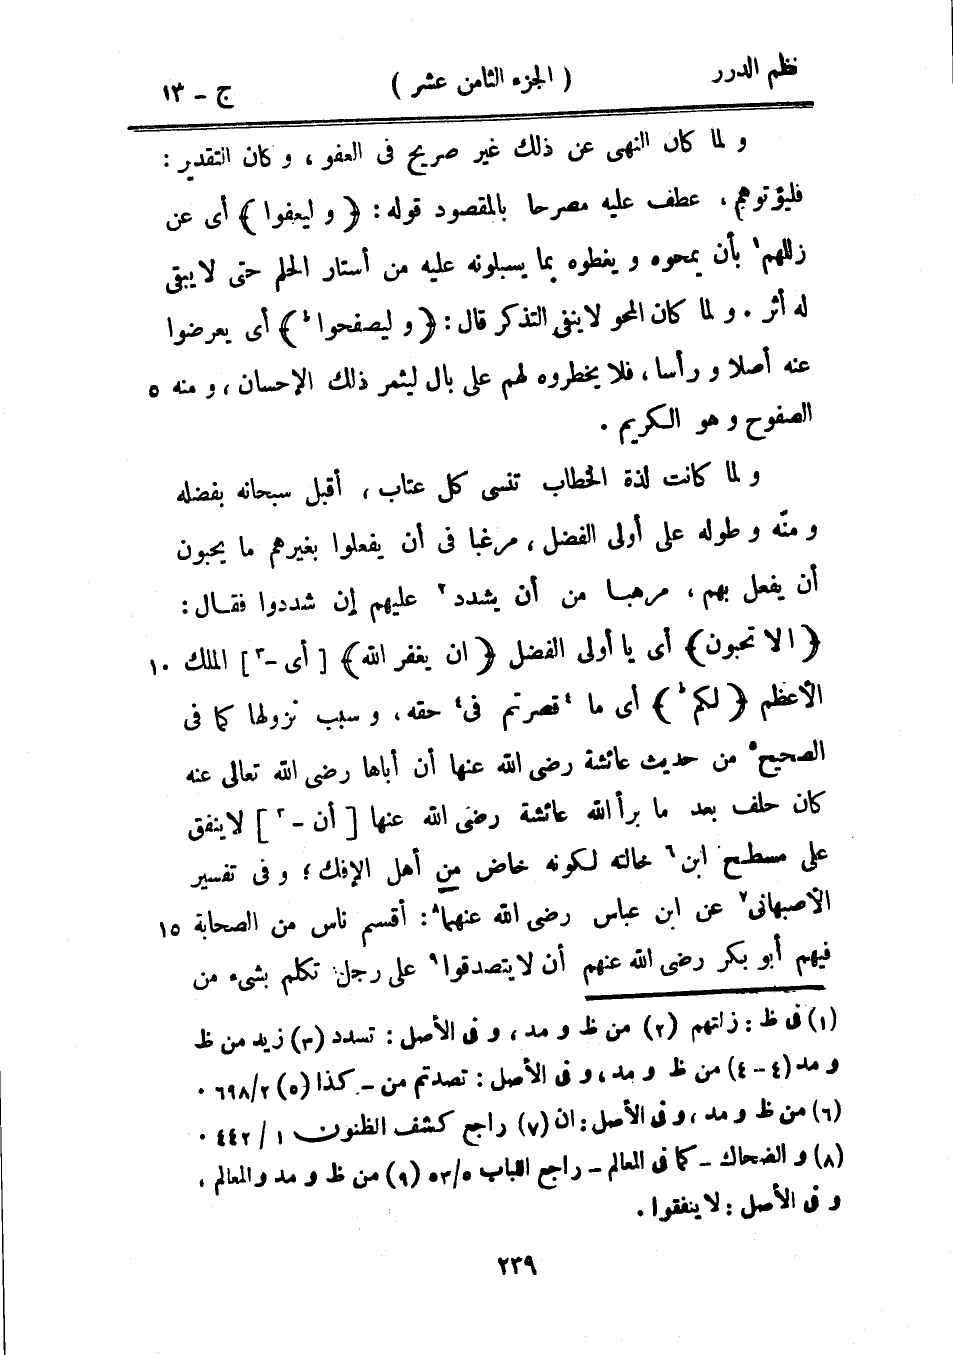 نظم الدرر ( الجزء الثامن عشر ) ج - ١٣
و لما كان النهى عن ذلك غير صريح فى العفو ، و كان التقدير :
فليؤتوهم ، عطف عليه مصرحا بالمقصود قوله : ﴿ و ليعفوا ﴾ أى عن
زللهم١ بأن يمحوه و يغطوه بما يسبلونه عليه من أستار الحلم حتى لا يبقى
له أثر . و لما كان المحو لا ينفى التذكر قال : ﴿ و ليصفحوا ط ﴾ أى يعرضوا
عنه أصلا و رأسا ، فلا يخطروه لهم على بال ليثمر ذلك الإحسان ، و منه ٥
الصفوح و هو الكريم .
و لما كانت لذة الخطاب تنسى كل عتاب ، أقبل سبحانه بفضله
و منّه و طوله على أولى الفضل ، مرغبا فى أن يفعلوا بغيرهم ما يحبون
أن يفعل بهم ، مرهبا من أن يشدد٢ عليهم إن شددوا فقال :
﴿ الا تحبون ﴾ أى يا أولى الفضل ﴿ ان يغفر الله ﴾ [ أى -٣ ] الملك ١٠
الأعظم ﴿ لكم ط ﴾ أى ما ٤قصرتم فى٤ حقه ، و سبب نزولها كما فى
الصحيح٥ من حديث عائشة رضى الله عنها أن أباها رضى الله تعالى عنه
كان حلف بعد ما برأ الله عائشة رضى الله عنها [ أن -٣ ] لا ينفق
على مسطح ابن٦ خالته لكونه خاض من أهل الإفك ؛ و فى تفسير
الأصبهانى٧ عن ابن عباس رضى الله عنهما٨ : أقسم ناس من الصحابة ١٥
فيهم أبو بكر رضى الله عنهم أن لا يتصدقوا٩ على رجل تكلم بشىء من
(١) فى ظ : زلتهم (٢) من ظ و مد ، و فى الأصل : تسدد (٣) زيد من ظ
و مد (٤ - ٤) من ظ و مد ، و فى الأصل : تصدتم من - كذا (٥) ٢/ ٦٩٨ .
(٦) من ظ و مد ، و فى الأصل : ان (٧) راجع كشف الظنون ١ / ٤٤٢ .
(٨) و الضحاك - كما فى المعالم - راجع اللباب ٥/ ٥٣ (٩) من ظ و مد و المعالم ،
و فى الأصل : لا ينفقوا .
٢٣٩